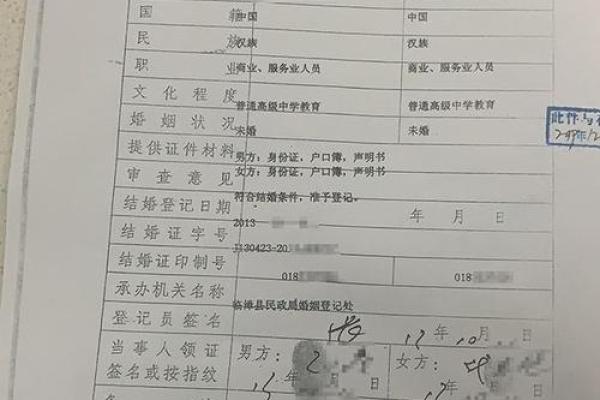 国籍 中国 中国
民族 汉族 汉族
职业 商业、服务业人员 商业、服务业人员
文化程度 普通高级中学教育 普通高级中学教育
婚姻状况 未婚 未婚
提供证件材料 男方：身份证，户口簿，声明书
审查意见 女方：身份证，户口簿，声明书
符合结婚条件，准予登记。
结婚登记日期 2013 年 月 日
结婚证字号 J130423-20
结婚证印制号 018 018
承办机关名称 临漳县民政局婚姻登记处
登记员签名 年 10 月
当事人领证 男方： 女方：
签名或按指纹 年 月 日 年 月 日
此件与